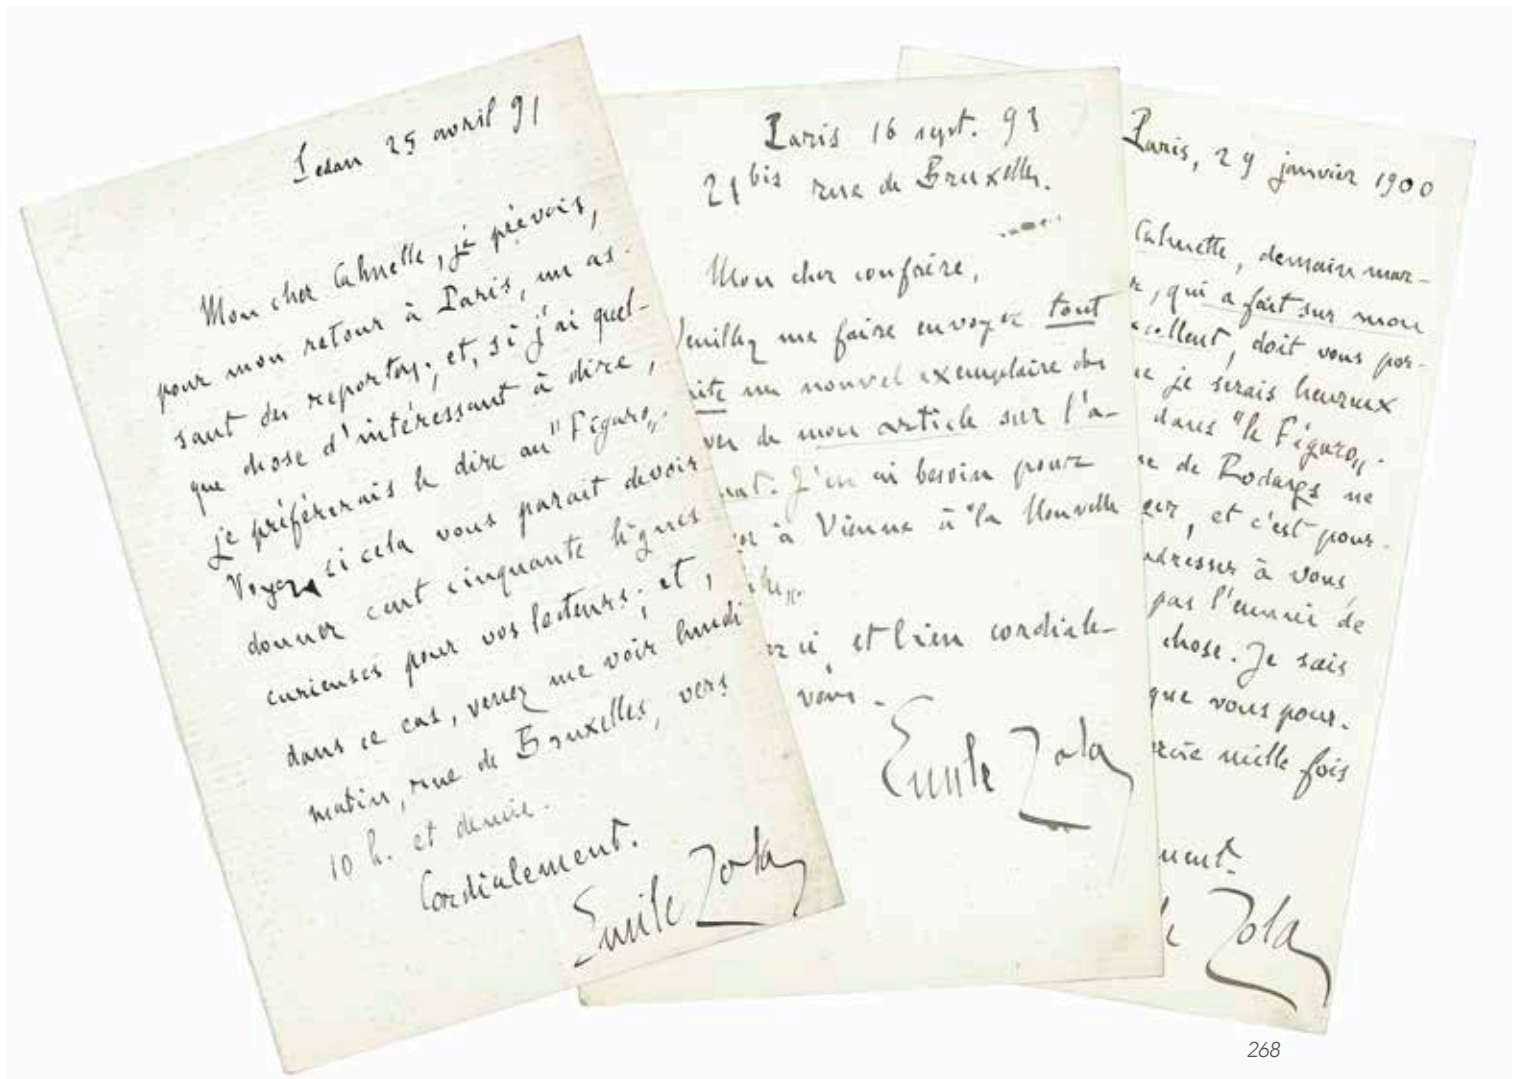 Sedan 25 avril 91
Mon cher Calmette, je prévois,
pour mon retour à Paris, un as-
saut des reporters; et, si j'ai quel-
que chose d'intéressant à dire,
je préférerais le dire au "Figaro".
Voyez si cela vous paraît devoir
donner cent cinquante lignes
curieuses pour vos lecteurs; et,
dans ce cas, venez me voir lundi
matin, rue de Bruxelles, vers
10 h. et demie.
Cordialement.
Emile Zola
Paris 16 sept. 93
21 bis rue de Bruxelles.
Mon cher confrère,
Veuillez me faire envoyer tout
nouvel exemplaire des
de mon article sur l'a-
nat. J'en ai besoin pour
à Vienne à "la Nouvelle
et bien cordiale-
vous.
Emile Zola
Paris, 29 janvier 1900
Calmette, demain mar-
qui a fait sur mon
xcellent, doit vous por-
je serais heureux
dans "le Figaro".
de Rodays ne
ger, et c'est pour-
adresser à vous,
pas l'ennui de
chose. Je sais
que vous pour-
rcie mille fois
ment.
Zola
268